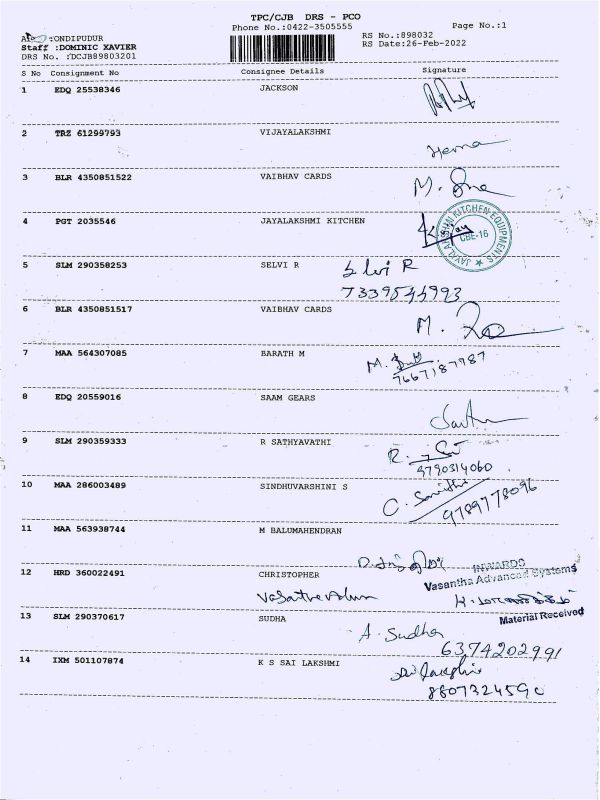 TPC/CJB DRS - PCO
Phone No.:0422-3505555
Page No.:1
:ONDIPUDUR
Staff :DOMINIC XAVIER
DRS No. :DCJB89803201
RS No.:898032
RS Date:26-Feb-2022
S No Consignment No Consignee Details Signature
1 EDQ 25538346 JACKSON
2 TRZ 61299793 VIJAYALAKSHMI
Hema
3 BLR 4350851522 VAIBHAV CARDS
M.
4 PGT 2035546 JAYALAKSHMI KITCHEN
JAYALAKSHMI KITCHEN EQUIPMENTS
CBE-16
5 SLM 290358253 SELVI R
Selvi R
7339544993
6 BLR 4350851517 VAIBHAV CARDS
M.
7 MAA 564307085 BARATH M
M.
7667187987
8 EDQ 20559016 SAAM GEARS
9 SLM 290359333 R SATHYAVATHI
R.
9790314060
10 MAA 286003489 SINDHUVARSHINI S
C.
9789778096
11 MAA 563938744 M BALUMAHENDRAN
12 HRD 360022491 CHRISTOPHER
INWARDS
Vasantha Advanced Systems
Material Received
13 SLM 290370617 SUDHA
A. Sudha
6374202991
14 IXM 501107874 K S SAI LAKSHMI
8807324590